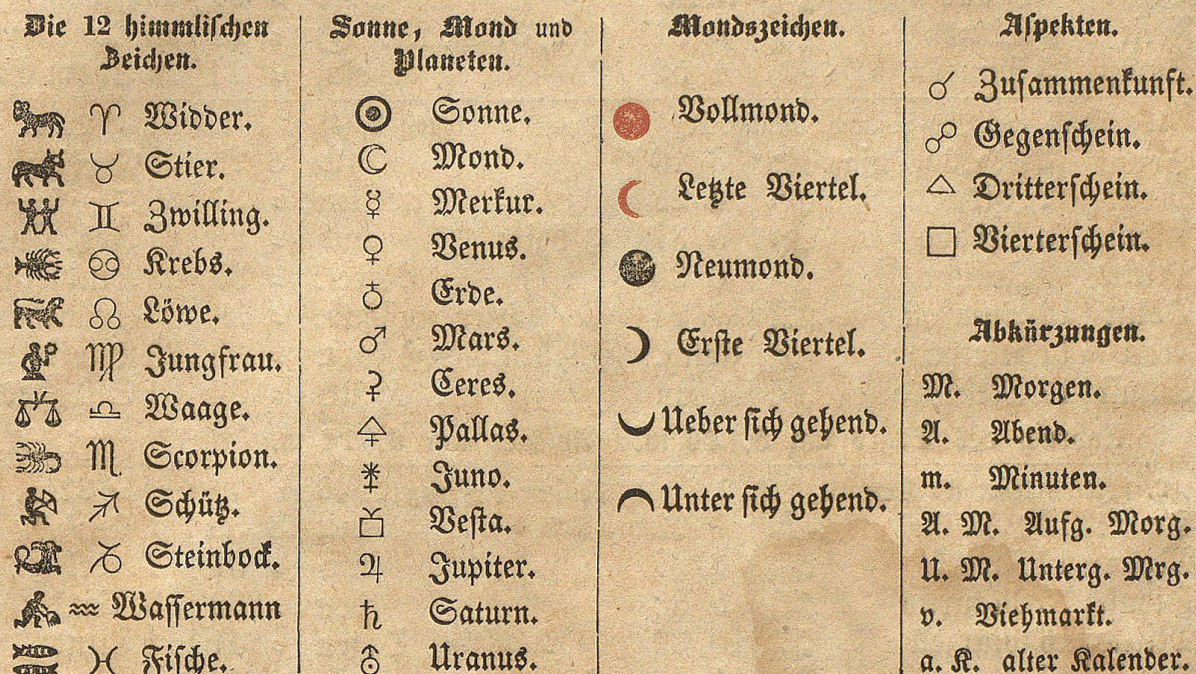 Die 12 himmlischen
Zeichen.
♈ Widder.
♉ Stier.
♊ Zwilling.
♋ Krebs.
♌ Löwe.
♍ Jungfrau.
♎ Waage.
♏ Scorpion.
♐ Schütz.
♑ Steinbock.
♒ Wassermann
♓ Fische.
Sonne, Mond und
Planeten.
☉ Sonne.
☾ Mond.
☿ Merkur.
♀ Venus.
♁ Erde.
♂ Mars.
⚳ Ceres.
⚴ Pallas.
⚵ Juno.
⚶ Vesta.
♃ Jupiter.
♄ Saturn.
⛢ Uranus.
Mondszeichen.
Vollmond.
Letzte Viertel.
Neumond.
Erste Viertel.
Ueber sich gehend.
Unter sich gehend.
Aspekten.
☌ Zusammenkunft.
☍ Gegenschein.
△ Dritterschein.
□ Vierterschein.
Abkürzungen.
M. Morgen.
A. Abend.
m. Minuten.
A. M. Aufg. Morg.
U. M. Unterg. Mrg.
v. Viehmarkt.
a. K. alter Kalender.